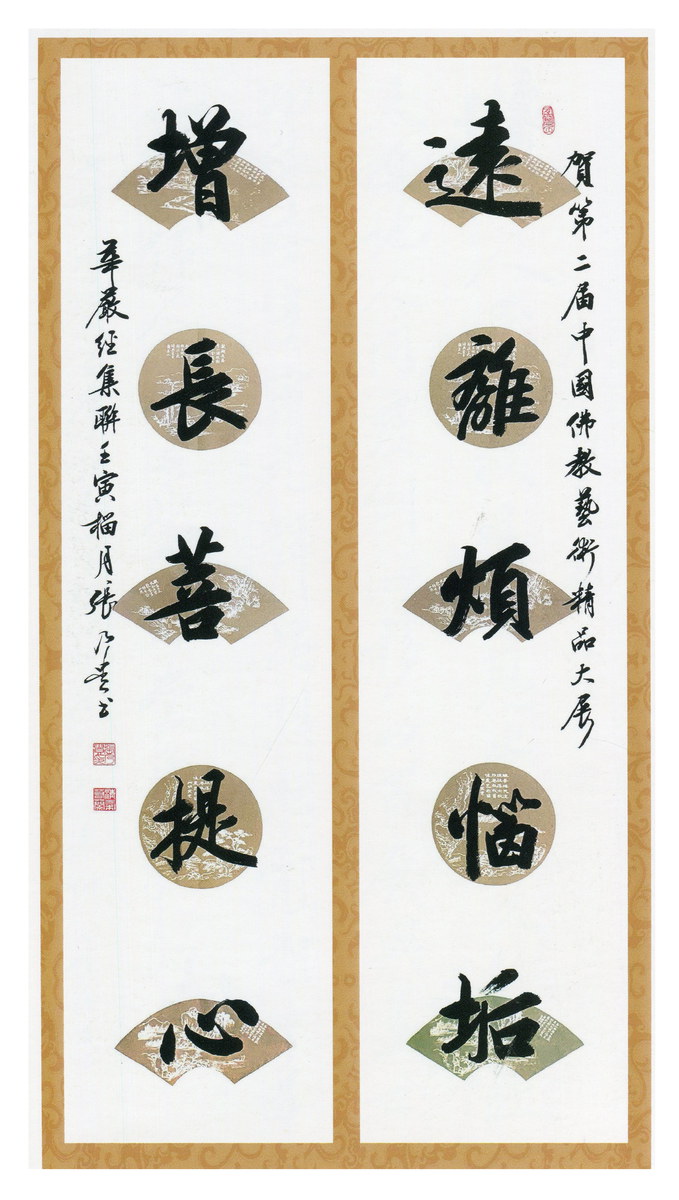 賀第二届中國佛教藝術精品大展
遠離煩惱垢
增長菩提心
華嚴經集聯壬寅榴月張乃書